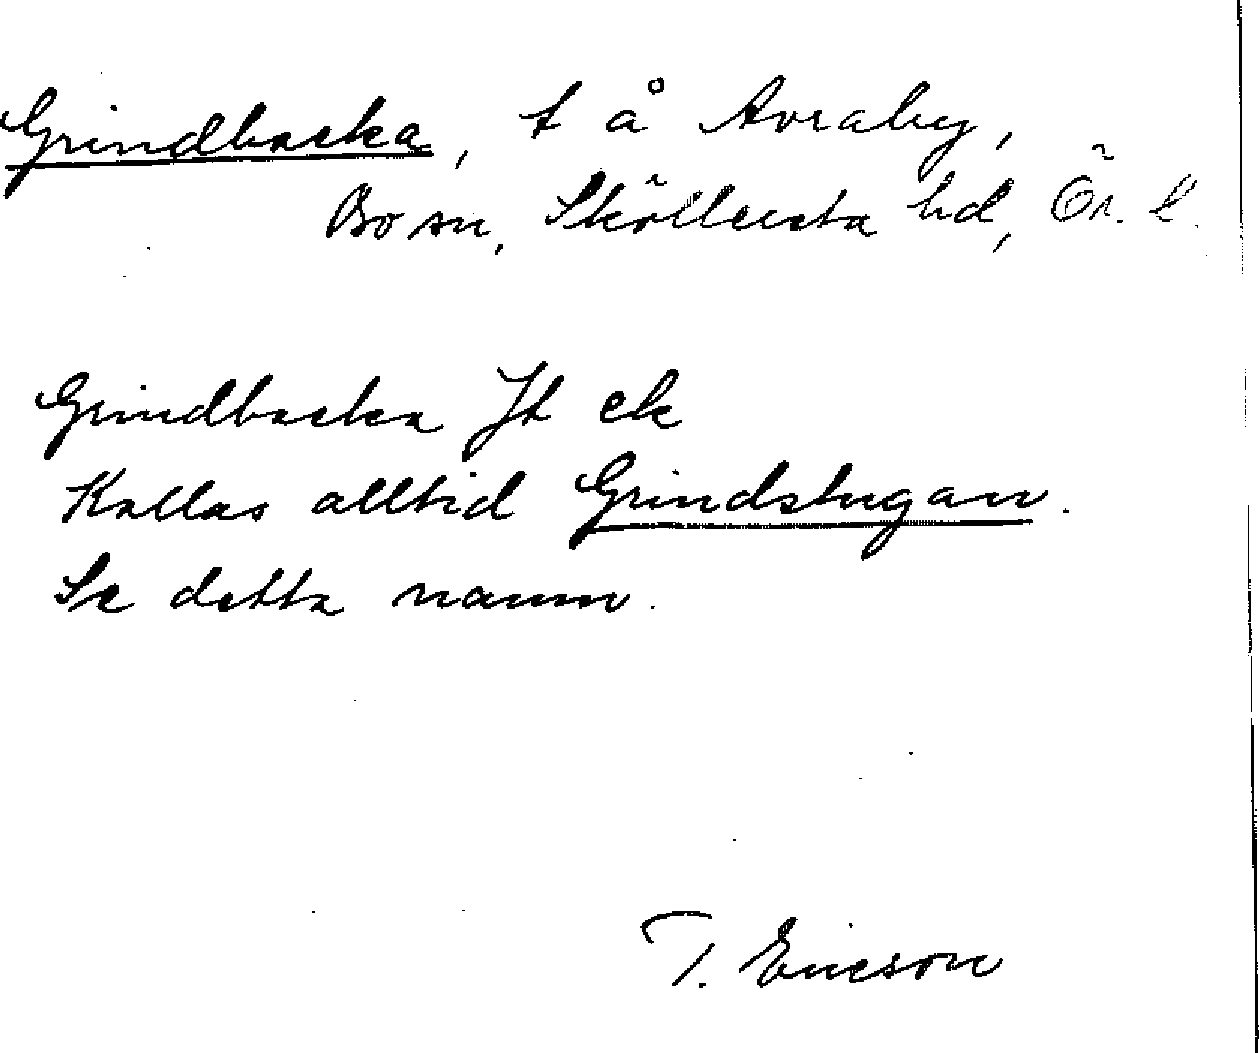 Grindbacka, t å Avraby,
Bo sn, Sköllersta hd, Ör. l.
Grindbacka Jt ek
Kallas alltid Grindstugan.
Se detta namn.
T. Ericson